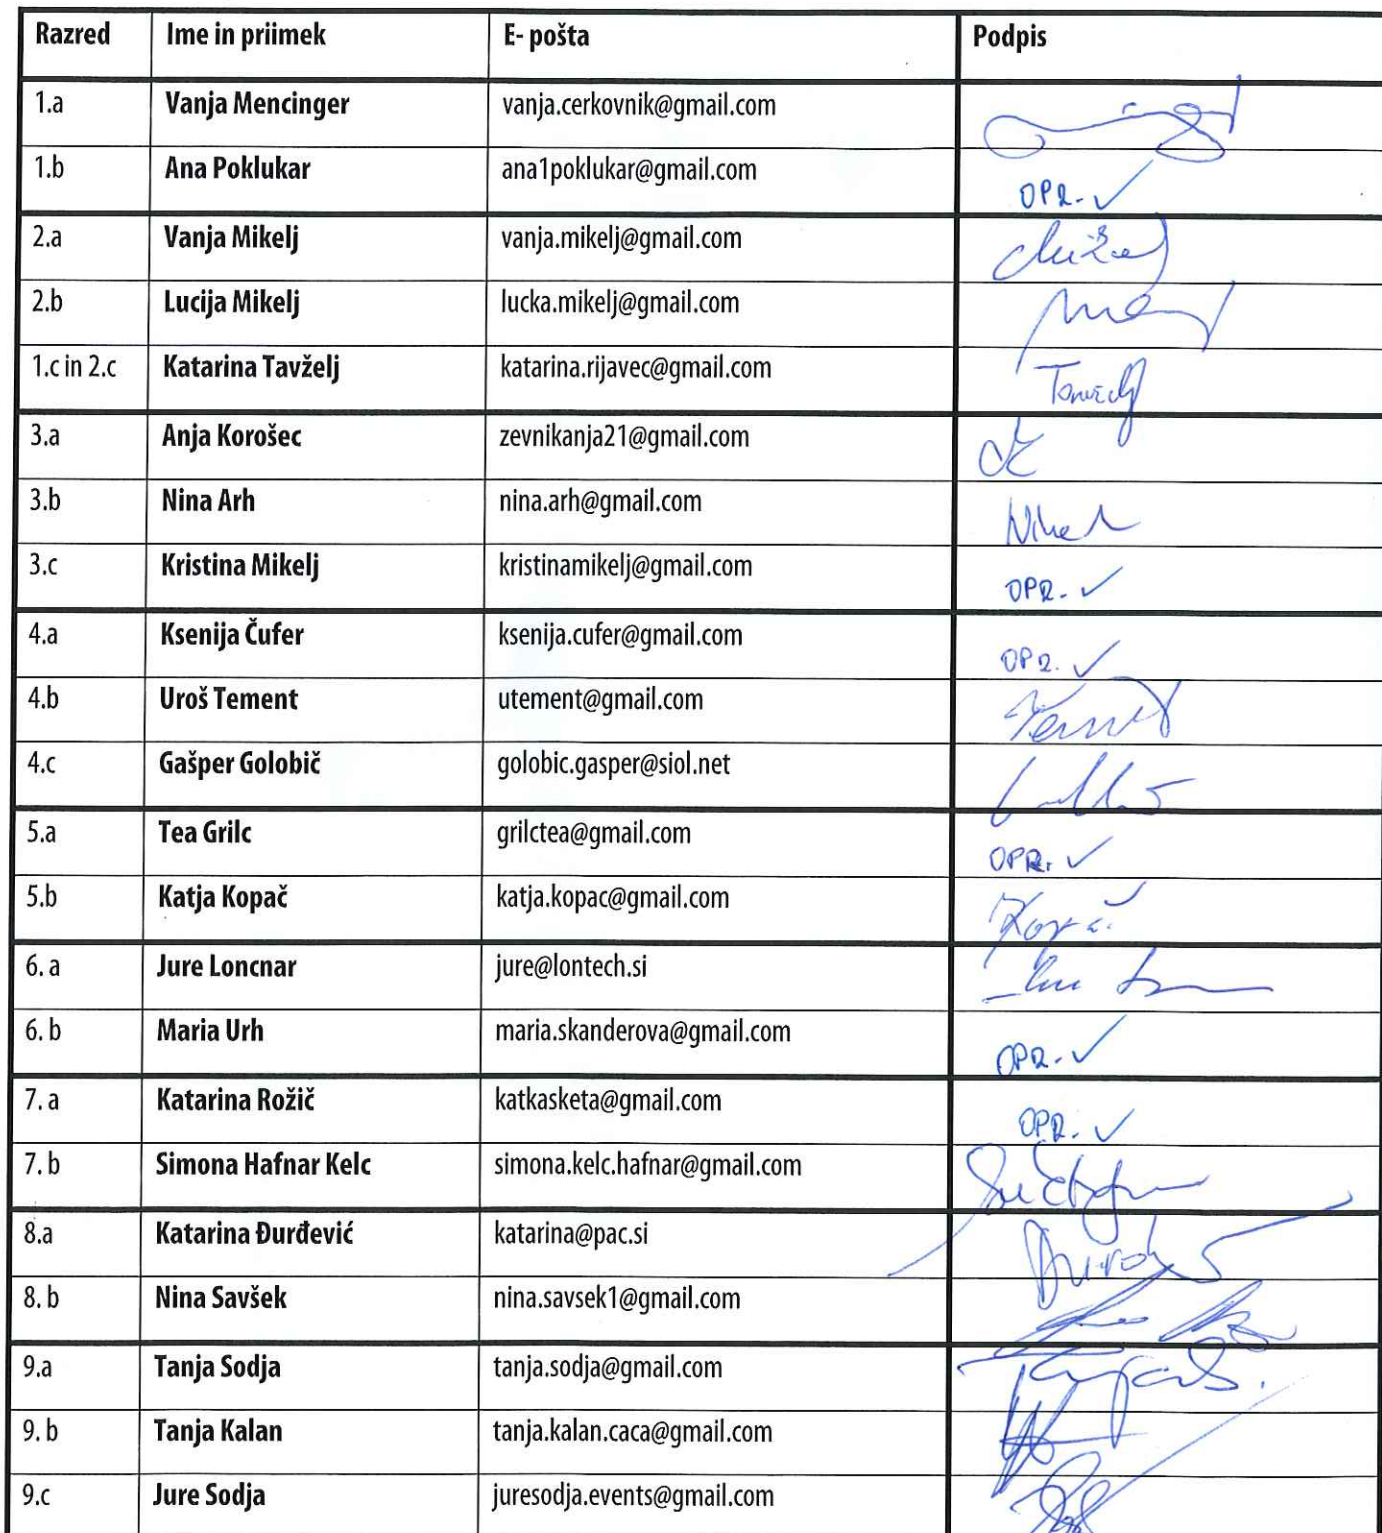 Razred Ime in priimek E- pošta Podpis
1.a Vanja Mencinger vanja.cerkovnik@gmail.com
1.b Ana Poklukar ana1poklukar@gmail.com OPR. ✓
2.a Vanja Mikelj vanja.mikelj@gmail.com
2.b Lucija Mikelj lucka.mikelj@gmail.com
1.c in 2.c Katarina Tavželj katarina.rijavec@gmail.com
3.a Anja Korošec zevnikanja21@gmail.com
3.b Nina Arh nina.arh@gmail.com
3.c Kristina Mikelj kristinamikelj@gmail.com OPR. ✓
4.a Ksenija Čufer ksenija.cufer@gmail.com OPR. ✓
4.b Uroš Tement utement@gmail.com
4.c Gašper Golobič golobic.gasper@siol.net
5.a Tea Grilc grilctea@gmail.com OPR. ✓
5.b Katja Kopač katja.kopac@gmail.com
6. a Jure Loncnar jure@lontech.si
6. b Maria Urh maria.skanderova@gmail.com OPR. ✓
7. a Katarina Rožič katkasketa@gmail.com OPR. ✓
7. b Simona Hafnar Kelc simona.kelc.hafnar@gmail.com
8.a Katarina Đurđević katarina@pac.si
8. b Nina Savšek nina.savsek1@gmail.com
9.a Tanja Sodja tanja.sodja@gmail.com
9. b Tanja Kalan tanja.kalan.caca@gmail.com
9.c Jure Sodja juresodja.events@gmail.com